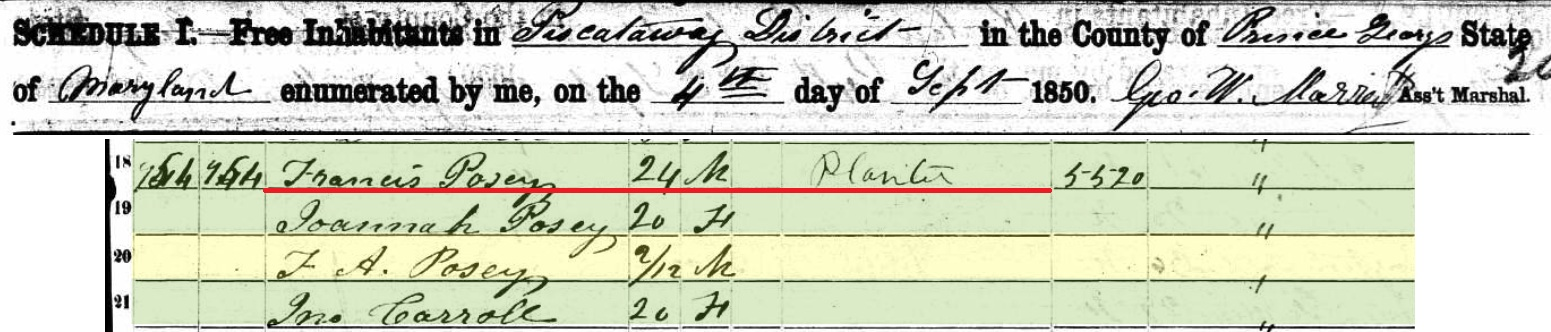 SCHEDULE I.—Free Inhabitants in Piscataway District in the County of Prince Georgs State
of Maryland enumerated by me, on the 4th day of Sept 1850. Geo. W. Marriott Ass't Marshal.
18 Francis Posey 24 M Planter 5520 "
19 Joannah Posey 20 F "
20 F A. Posey 9/12 M "
21 Jno Carroll 20 F "